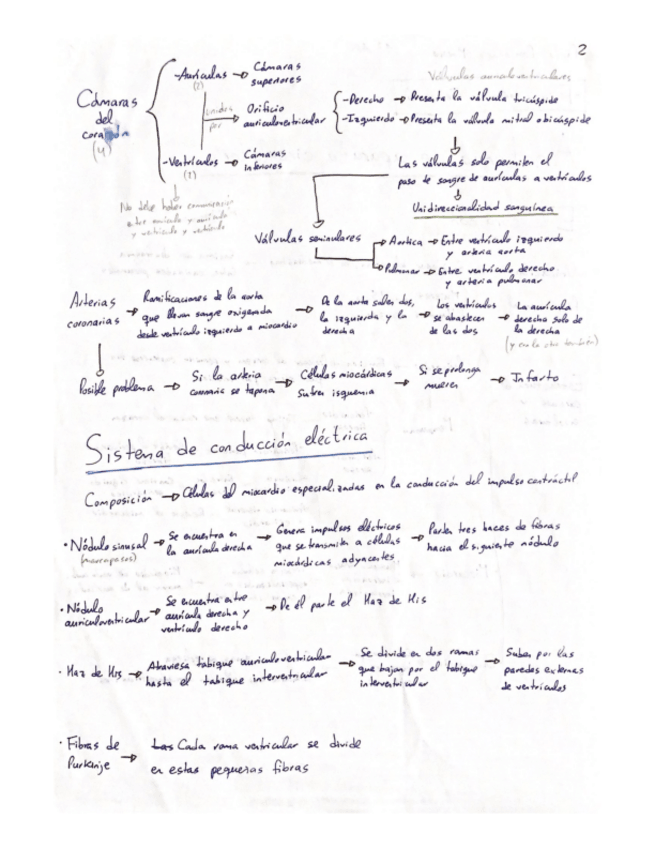 2
Válvulas auriculoventriculares
Cámaras
del
corazón
(4)
-Aurículas → Cámaras
superiores
(2)
unidos
por
Orificio
auriculoventricular
-Derecho → Presenta la válvula tricúspide
-Izquierdo → Presenta la válvula mitral o bicúspide
-Ventrículos → Cámaras
inferiores
(2)
No debe haber comunicación
entre aurícula y aurícula
y ventrículo y ventrículo
Las válvulas solo permiten el
paso de sangre de aurículas a ventrículos
Unidireccionalidad sanguínea
Válvulas seminulares
Aortica → Entre ventrículo izquierdo
y arteria aorta
Pulmonar → Entre ventrículo derecho
y arteria pulmonar
Arterias
coronarias
→ Ramificaciones de la aorta
que llevan sangre oxigenada
desde ventrículo izquierdo a miocardio
→ De la aorta salen dos,
la izquierda y la
derecha
→ Los ventrículos
se abastecen
de las dos
→ La aurícula
derecha solo de
la derecha
Posible problema → Si la arteria
coronaria se tapona
→ Células miocárdicas
sufren isquemia
→ Si se prolonga
mueren
→ Infarto
Sistema de conducción eléctrica
Composición → Células del miocardio especializadas en la conducción del impulso contráctil
· Nódulo sinusal
(marcapasos)
→ Se encuentra en
la aurícula derecha
→ Genera impulsos eléctricos
que se transmiten a células
miocárdicas adyacentes
→ Parten tres haces de fibras
hacia el siguiente nódulo
· Nódulo
auriculoventricular
→ Se encuentra entre
aurícula derecha y
ventrículo derecho
→ De él parte el Haz de His
· Haz de His → Atraviesa tabique auriculoventricular
hasta el tabique interventricular
→ Se divide en dos ramas
que bajan por el tabique
interventricular
→ Suben por las
paredes externas
de ventrículos
· Fibras de
Purkinje
→ Las Cada rama ventricular se divide
en estas pequeñas fibras